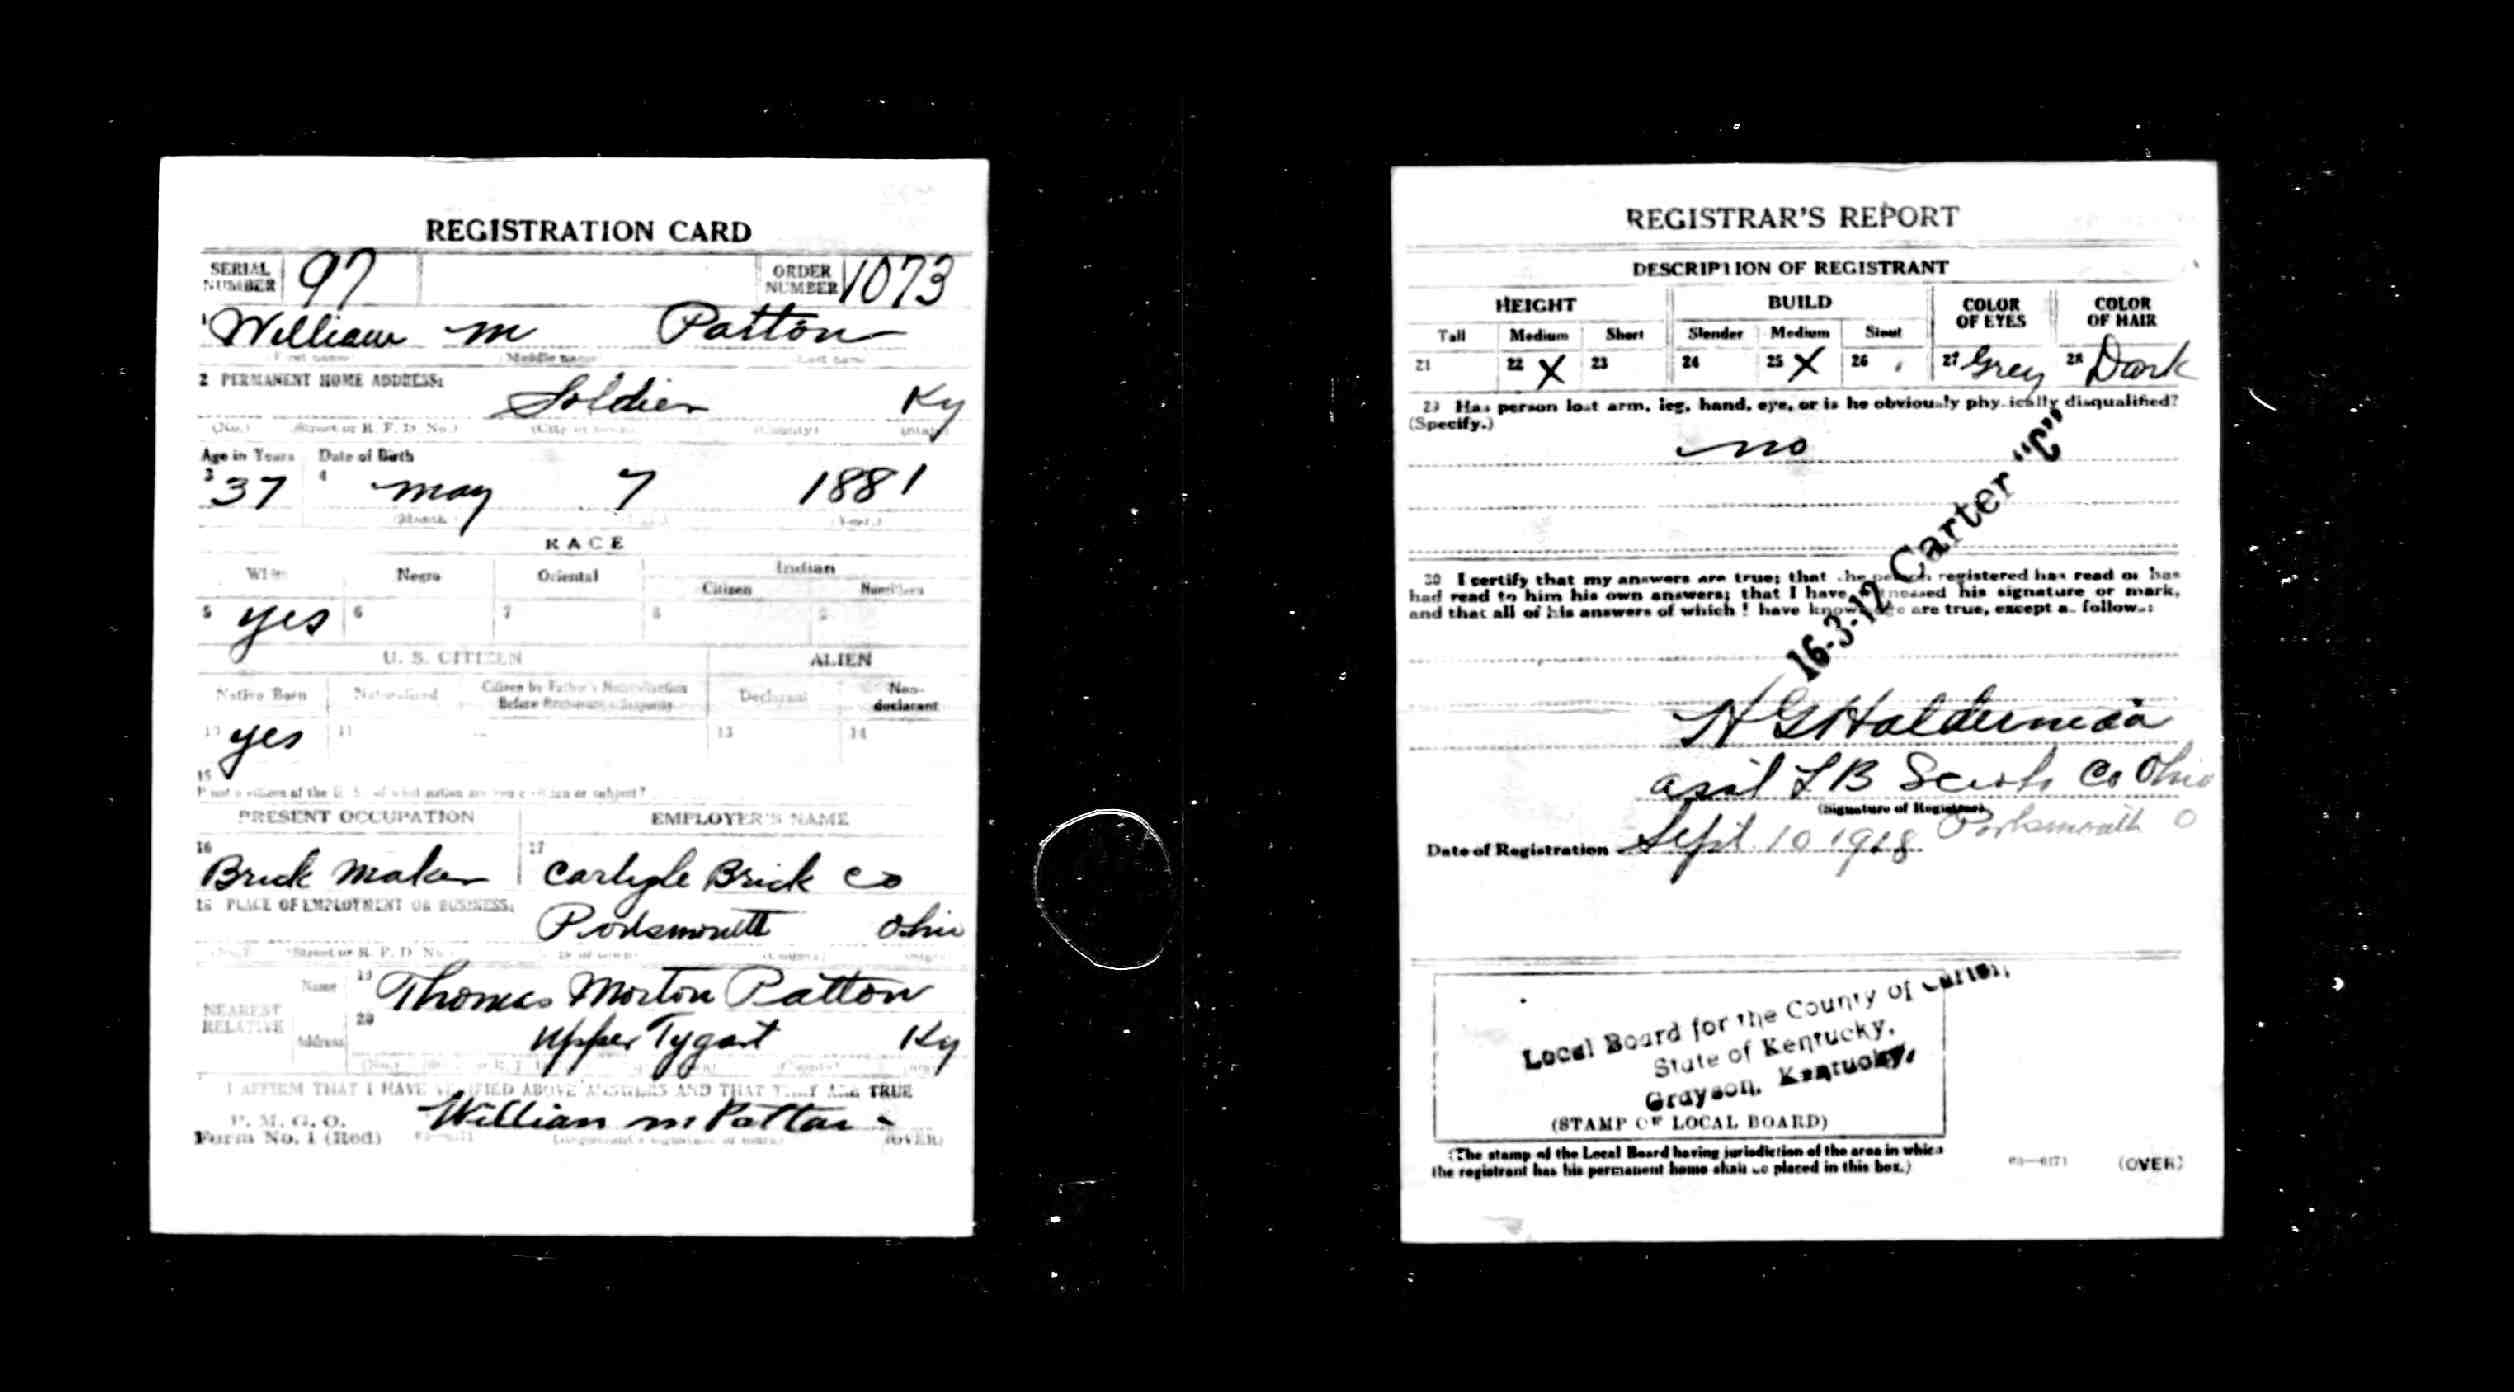 REGISTRATION CARD
SERIAL NUMBER 97 ORDER NUMBER 1073
1 William M Patton
First name Middle name Last name
2 PERMANENT HOME ADDRESS:
Soldier Ky
(No.) (Street or R. F. D. No.) (City or town) (County) (State)
Age in Years Date of Birth
3 37 4 May 7 1881
(Month) (Year.)
RACE
White Negro Oriental Indian
Citizen Noncitizen
5 yes 6 7 8 9
U. S. CITIZEN ALIEN
Native Born Naturalized Citizen by Father's Naturalization Before Registrant's Majority Declarant Non-declarant
10 yes 11 13 14
15
If not a citizen of the U. S., of what nation are you a citizen or subject?
PRESENT OCCUPATION EMPLOYER'S NAME
16 Brick Maker 17 Carlyle Brick Co
18 PLACE OF EMPLOYMENT OR BUSINESS:
Portsmouth Ohio
(No.) (Street or R. F. D. No.) (City or town) (County) (State)
NEAREST RELATIVE
Name 19 Thomas Morton Patton
Address 20 Upper Tygart Ky
I AFFIRM THAT I HAVE VERIFIED ABOVE ANSWERS AND THAT THEY ARE TRUE
P. M. G. O.
Form No. 1 (Red) William M Patton
(Registrant's signature or mark) (OVER)
REGISTRAR'S REPORT
DESCRIPTION OF REGISTRANT
HEIGHT BUILD COLOR OF EYES COLOR OF HAIR
Tall Medium Short Slender Medium Stout
21 22 X 23 24 25 X 26 27 Grey 28 Dark
29 Has person lost arm, leg, hand, eye, or is he obviously physically disqualified?
(Specify.)
no
16-3-12 Carter "C"
30 I certify that my answers are true; that the person registered has read or has
had read to him his own answers; that I have witnessed his signature or mark,
and that all of his answers of which I have knowledge are true, except as follows:
H G Halderman
LB Scioto Co Ohio
(Signature of Registrar)
Portsmouth O
Date of Registration Sept 10 1918
Local Board for the County of Carter,
State of Kentucky,
Grayson, Kentucky,
(STAMP OF LOCAL BOARD)
(The stamp of the Local Board having jurisdiction of the area in which
the registrant has his permanent home shall be placed in this box.)
03—6171 (OVER)